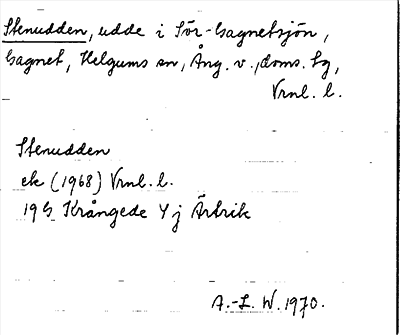 Stenudden, udde i Sör-Gagnetsjön,
Gagnet, Helgums sn, Ång. v., doms. tg,
Vrnl. l.
Stenudden
ek (1968) Vrnl. l.
19 G Krångede Y j Ärtrik
A.-L. W. 1970.